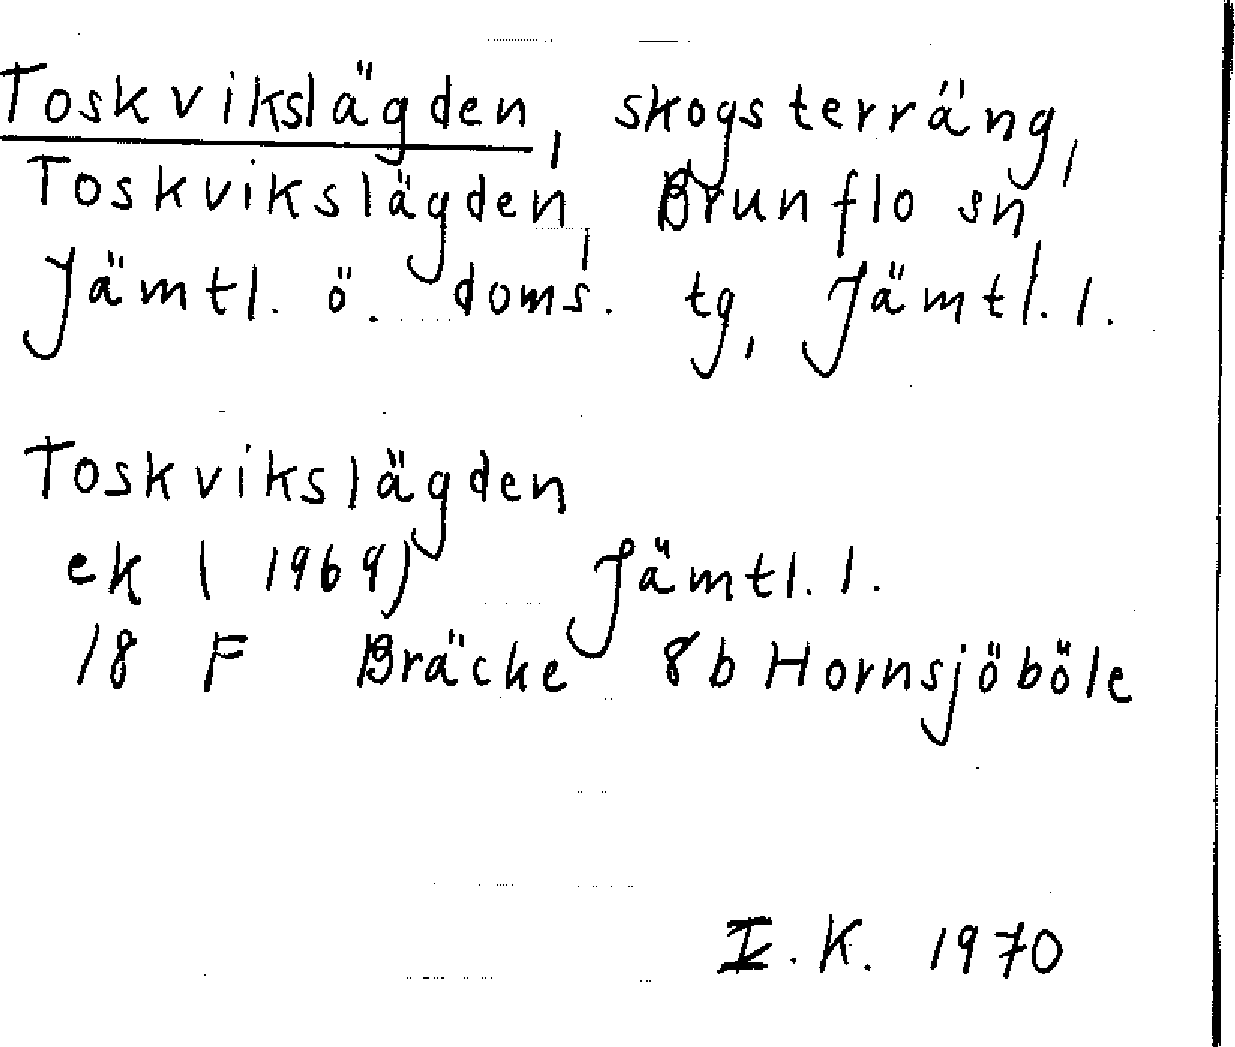 Toskvikslägden, skogsterräng,
Toskvikslägden, Brunflo sn,
Jämtl. ö. doms. tg, Jämtl. l.
Toskvikslägden
ek (1969) Jämtl. l.
18 F Bräcke 8b Hornsjöböle
I.K. 1970